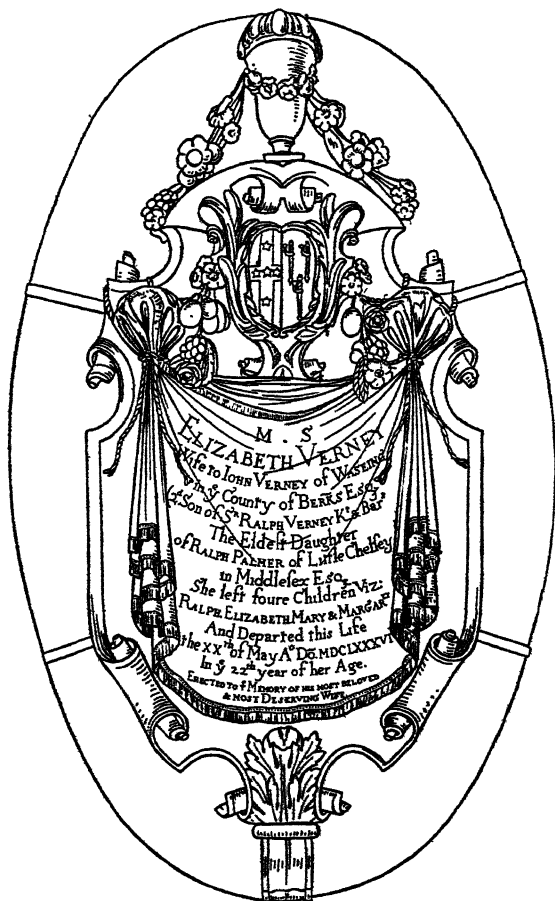 M . S
ELIZABETH VERNEY
Wife to IOHN VERNEY of WASEING
in yͤ County of BERKS Esqͬ
Son of Sͬ RALPH VERNEY Kͭ & Barͭ
The Eldest Daughter
of RALPH PALMER of Little Chelsey
in Middlesex Esqͬ
She left foure Children Viz:
RALPH ELIZABETH MARY & MARGARͭ
And Departed this Life
the XXᵗʰ of May Aᵒ Dō. MDCLXXXVI
In yͤ 22ᵗʰ year of her Age.
ERECTED TO yͤ MEMORY OF HIS MOST BELOVED
& MOST DESERVING WIFE